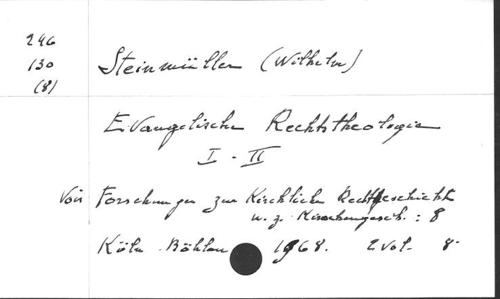 246
130
(8)
Steinmüller (Wilhelm)
Evangelische Rechtstheologie
I - II
Voir Forschungen zur Kirchlichen Rechtsgeschichte
u. z. Kirchengesch. : 8
Köln Böhlau 1968. 2 vol. 8-